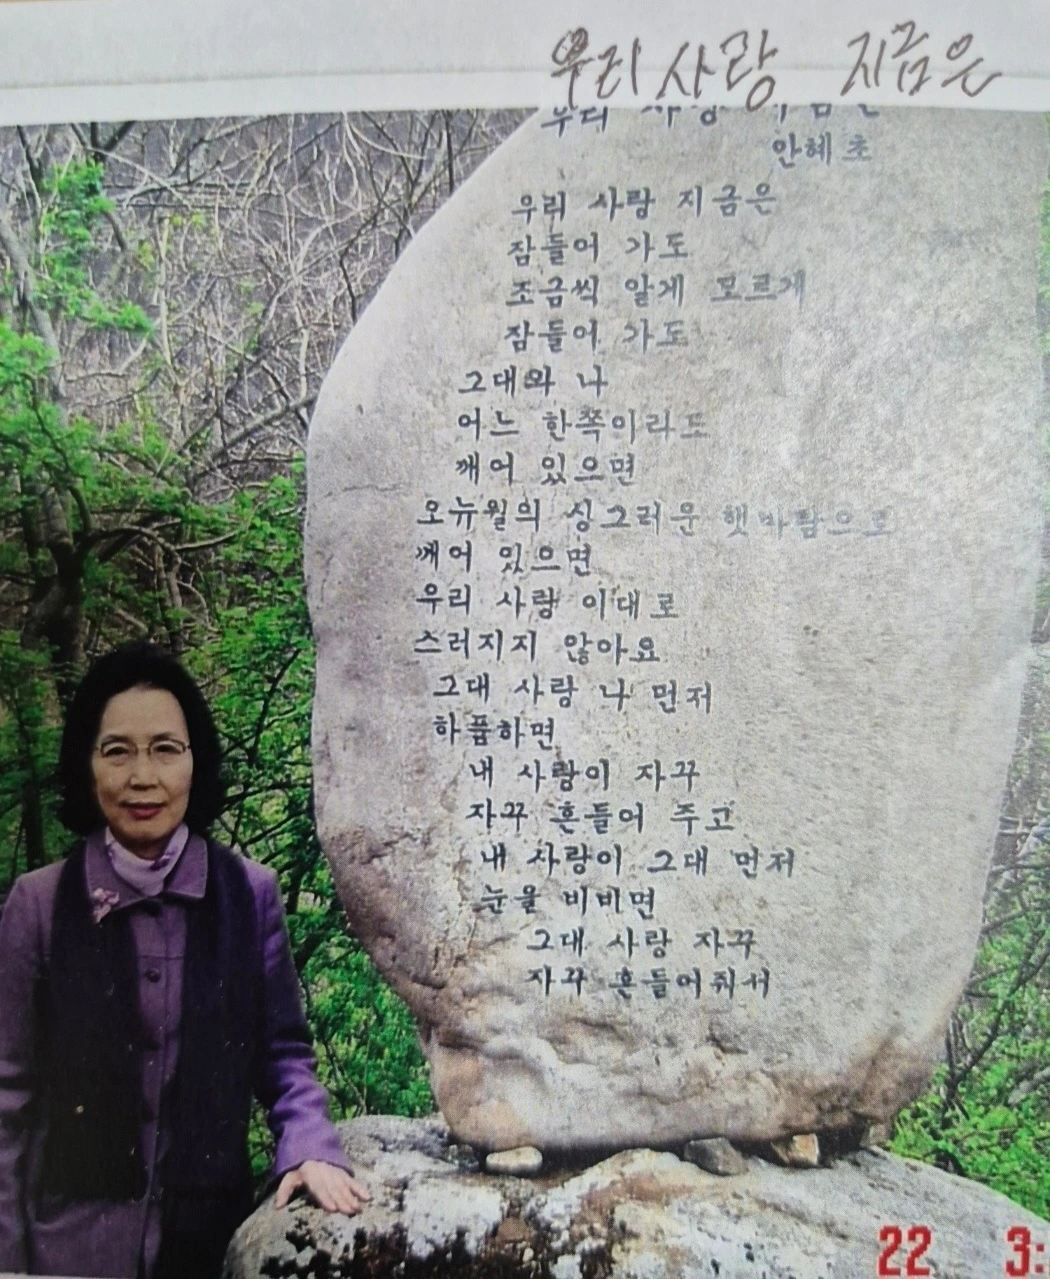 우리 사랑 지금은
우리 사랑 지금은
안혜초
우리 사랑 지금은
잠들어 가도
조금씩 알게 모르게
잠들어 가도
그대와 나
어느 한쪽이라도
깨어 있으면
오뉴월의 싱그러운 햇바람으로
깨어 있으면
우리 사랑 이대로
스러지지 않아요
그대 사랑 나 먼저
하품하면
내 사랑이 자꾸
자꾸 흔들어 주고
내 사랑이 그대 먼저
눈을 비비면
그대 사랑 자꾸
자꾸 흔들어줘서
22 3: